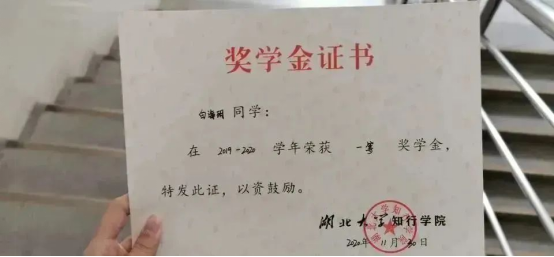 奖学金证书
白海阔同学:
在 2019-2020 学年荣获 一等 奖学金,
特发此证,以资鼓励。
湖北大学知行学院
2020年 11月 30日